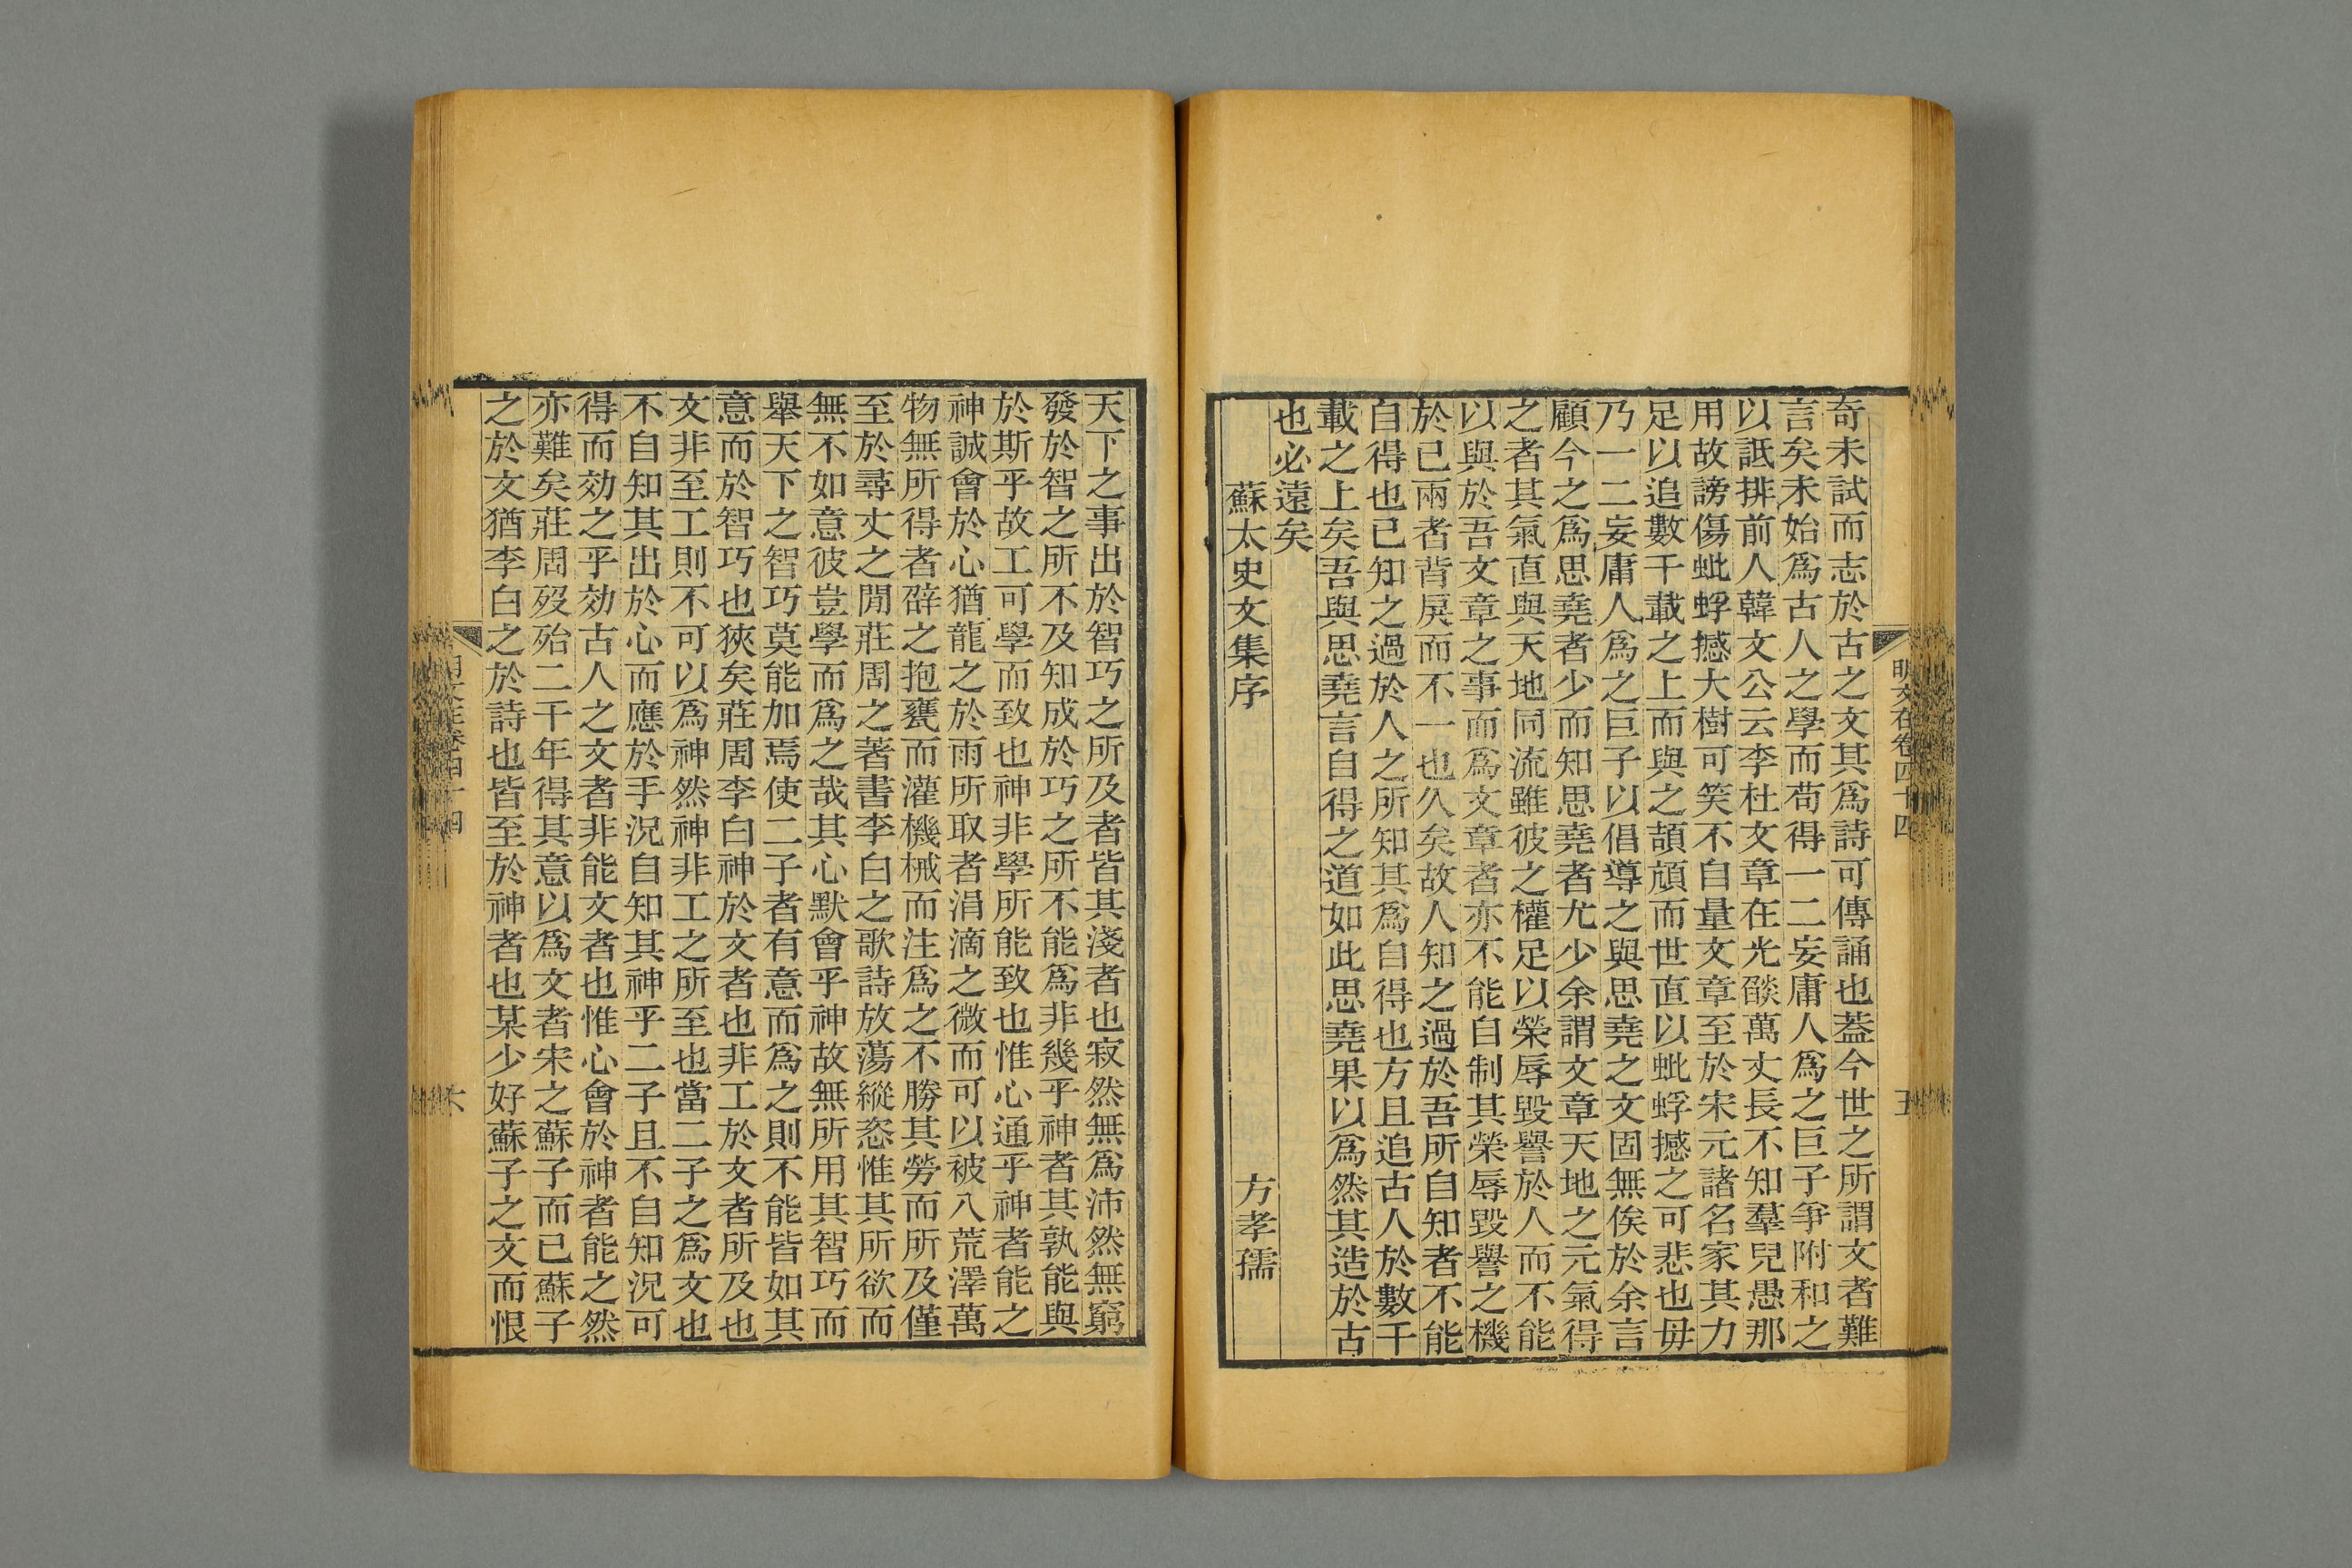 明文在卷四十四
五
奇未試而志於古之文其爲詩可傳誦也葢今世之所謂文者難
言矣未始爲古人之學而苟得一二妄庸人爲之巨子爭附和之
以詆排前人韓文公云李杜文章在光燄萬丈長不知羣兒愚那
用故謗傷蚍蜉撼大樹可笑不自量文章至於宋元諸名家其力
足以追數千載之上而與之頡頏而世直以蚍蜉撼之可悲也毋
乃一二妄庸人爲之巨子以倡導之與思堯之文固無俟於余言
顧今之爲思堯者少而知思堯者尤少余謂文章天地之元氣得
之者其氣直與天地同流雖彼之權足以榮辱毀譽於人而不能
以與於吾文章之事而爲文章者亦不能自制其榮辱毀譽之機
於已兩者背戾而不一也久矣故人知之過於吾所自知者不能
自得也已知之過於人之所知其爲自得也方且追古人於數千
載之上矣吾與思堯言自得之道如此思堯果以爲然其造於古
也必遠矣
蘇太史文集序
方孝孺
天下之事出於智巧之所及者皆其淺者也寂然無爲沛然無窮
發於智之所不及知成於巧之所不能爲非幾乎神者其孰能與
於斯乎故工可學而致也神非學所能致也惟心通乎神者能之
神誠會於心猶龍之於雨所取者涓滴之微而可以被八荒澤萬
物無所得者辟之抱甕而灌機械而注爲之不勝其勞而所及僅
至於尋丈之閒莊周之著書李白之歌詩放蕩縱恣惟其所欲而
無不如意彼豈學而爲之哉其心默會乎神故無所用其智巧而
舉天下之智巧莫能加焉使二子者有意而爲之則不能皆如其
意而於智巧也狹矣莊周李白神於文者也非工於文者所及也
文非至工則不可以爲神然神非工之所至也當二子之爲文也
不自知其出於心而應於手況自知其神乎二子且不自知況可
得而効之乎効古人之文者非能文者也惟心會於神者能之然
亦難矣莊周歿殆二千年得其意以爲文者宋之蘇子而已蘇子
之於文猶李白之於詩也皆至於神者也某少好蘇子之文而恨
六